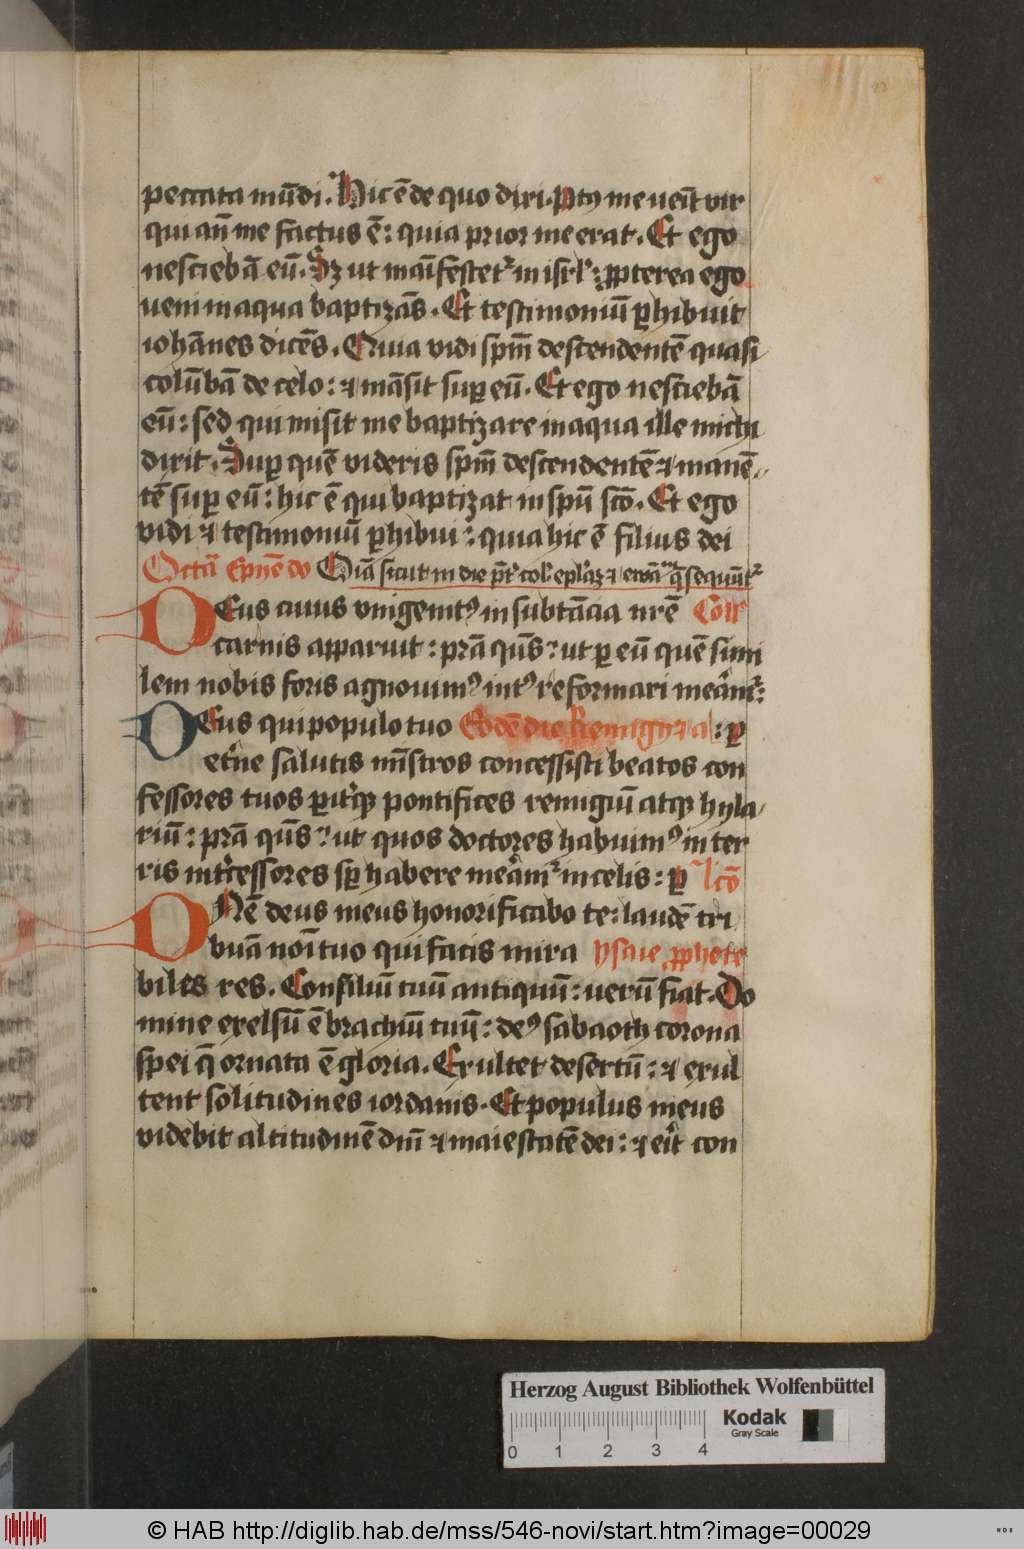 23
peccata mūdi. Hic ē de quo dixi. Pꝰ me ueīt vir
qui añ me factus ē: quia prior me erat. Et ego
nesciebā eū. Sꝫ ut maīfestetᷣ in isrl̕: ꝓpterea ego
ueni in aqua baptizās. Et testimoniū ꝑhibuit
iohānes dicēs. Quia vidi spm̄ descendentē quasi
colūbā de celo: ⁊ māsit suꝑ eū. Et ego nesciebā
eū: sed qui misit me baptizare in aqua ille michi
dixit. Suꝑ quē videris spm̄ descendentē ⁊ manē-
tē suꝑ eū: hic ē qui baptizat in spū scō. Et ego
vidi ⁊ testimoniū ꝑhibui: quia hic ē filius dei
Octā Epyē do Oīa sicut in die p̄t̕ col̕ epl̕aꝫ ⁊ ewā q̄ sequūtᷣ
DEus cuius vnigenitꝰ in subtācia nr̄e Coll̕
carnis apparuit: p̄ta q̄s: ut ꝑ eū quē simi
lem nobis foris agnouimꝰ intꝰ reformari meām̕:
DEus qui populo tuo Eodē die Remigij ⁊ al̕: ꝑ
et̕ne salutis mīstros concessisti beatos con
fessores tuos ꝑit̕qꝫ pontifices remigiū atqꝫ hyla-
riū: p̄ta q̄s: ut quos doctores habuimꝰ in ter
ris int̕cessores sꝑ habere meām̕ in celis: ꝑ l̕cō
DNē deus meus honorificabo te: laudē tri
buā noī tuo qui facis mira ysaie ꝓphete
biles res. Consiliū tuū antiquū: uerū fiat. Do
mine excelsū ē brachiū tuū: deꝰ sabaoth corona
spei q̄ ornata ē gloria. Exultet desertū: ⁊ exul
tent solitudines iordanis. Et populus meus
videbit altitudinē dn̄i ⁊ maiestatē dei: ⁊ er̄it con
Herzog August Bibliothek Wolfenbüttel
0 1 2 3 4
Kodak
Gray Scale
© HAB http://diglib.hab.de/mss/546-novi/start.htm?image=00029